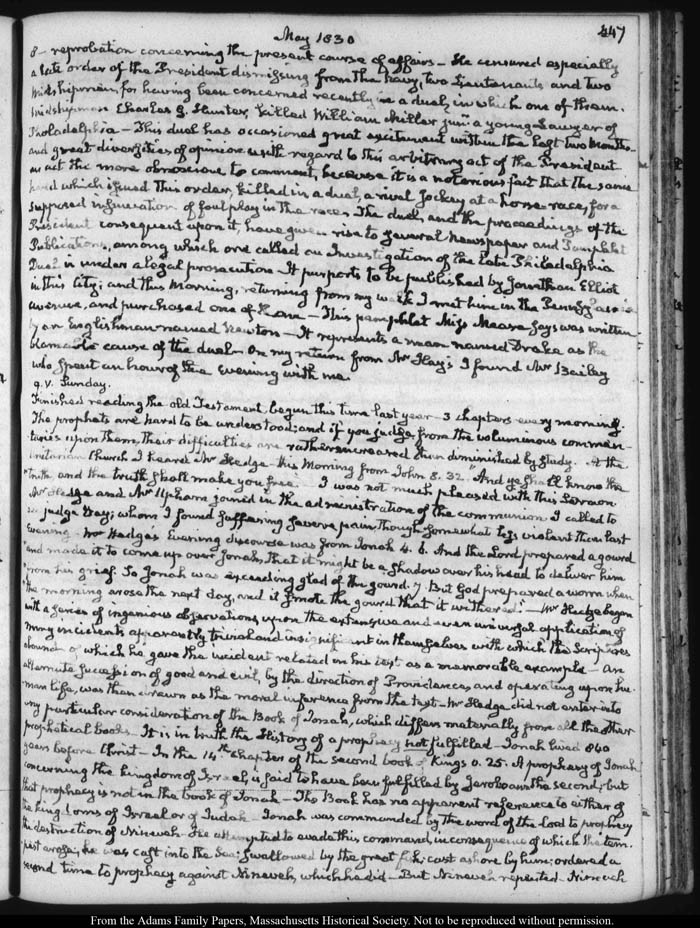 May 1830
447
8 — reprobation concerning the present course of affairs — He censured especially
a late order of the President dismissing from the Navy, two Lieutenants and two
Midshipmen, for having been concerned recently in a duel, in which one of them.
Midshipman Charles G. Hunter, killed William Miller junr. a young Lawyer of
Philadelphia — This duel has occasioned great excitement within the last two Months —
and great diversities of opinion with regard to this arbitrary act of the President
an act the more obnoxious to comment, because it is a notorious fact that the same
hand which issued this order, killed in a duel, a rival Jockey at a horse-race, for a
supposed insinuation of foul play in the race. The duel, and the proceedings of the
President consequent upon it, have given rise to several Newspaper and Pamphlet
Publications, among which one called an Investigation of the late Philadelphia
Duel is under a legal prosecution — It purports to be published by Jonathan Elliot
in this City; and this Morning, returning from my walk I met him in the Pennsylvania
avenue, and purchased one of them — This pamphlet Miss Mease says was written
by an Englishman named Newton — It represents a man named Drake as the
blameable cause of the duel — On my return from Mr Hay's I found Mr Bailey
who spent an hour of the Evening with me.
9. V. Sunday.
Finished reading the Old Testament begun this time last year — 3 chapters every morning.
The prophets are hard to be understood; and if you judge from the voluminous commen-
taries upon them, their difficulties are rather increased than diminished by study. At the
Unitarian Church I heard Mr Hedge this Morning from John 8. 32. "And ye shall know the
"truth and the truth shall make you free." I was not much pleased with this Sermon.
Mr Hedge and Mr Upham joined in the administration of the communion. I called to
see Judge Hay; whom I found suffering severe pain, though somewhat less violent than last
Evening. Mr Hedge's Evening discourse was from Jonah 4. 6. And the Lord prepared a gourd
"and made it to come up over Jonah, that it might be a shadow over his head to deliver him
"from his grief. So Jonah was exceeding glad of the gourd. 7 But God prepared a worm when
"the morning arose the next day, and it smote the gourd that it withered." — Mr Hedge began
with a series of ingenious observations upon the extensive and even universal application of
many incidents apparently trivial and insignificant in themselves with which the Scriptures
abound of which he gave the incident related in his text as a memorable example — An
alternate succession of good and evil, by the direction of Providence, and operating upon hu-
man life, was then drawn as the moral inference from the text — Mr Hedge did not enter into
any particular consideration of the Book of Jonah, which differs materially from all the other
prophetical books. It is in truth the History of a prophecy not fulfilled — Jonah lived 840
years before Christ — In the 14th. chapter of the second book of Kings v. 25. A prophecy of Jonah
concerning the kingdom of Israel, is said to have been fulfilled by Jeroboam the second; but
that prophecy is not in the book of Jonah — The Book has no apparent reference to either of
the kingdoms of Israel or of Judah. Jonah was commanded by the word of the Lord to prophecy
the destruction of Nineveh. He attempted to evade this command, in consequence of which the tem-
pest arose; he was cast into the Sea; swallowed by the great fish; cast ashore by him; ordered a
second time to prophecy against Nineveh, which he did — But Nineveh repented. Nineveh
From the Adams Family Papers, Massachusetts Historical Society. Not to be reproduced without permission.